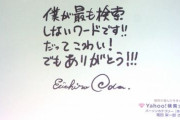 僕が最も検索
しないワードです!!
だってこわい!
でもありがとう!!!
Eiichiro Oda.
Yahoo!検索